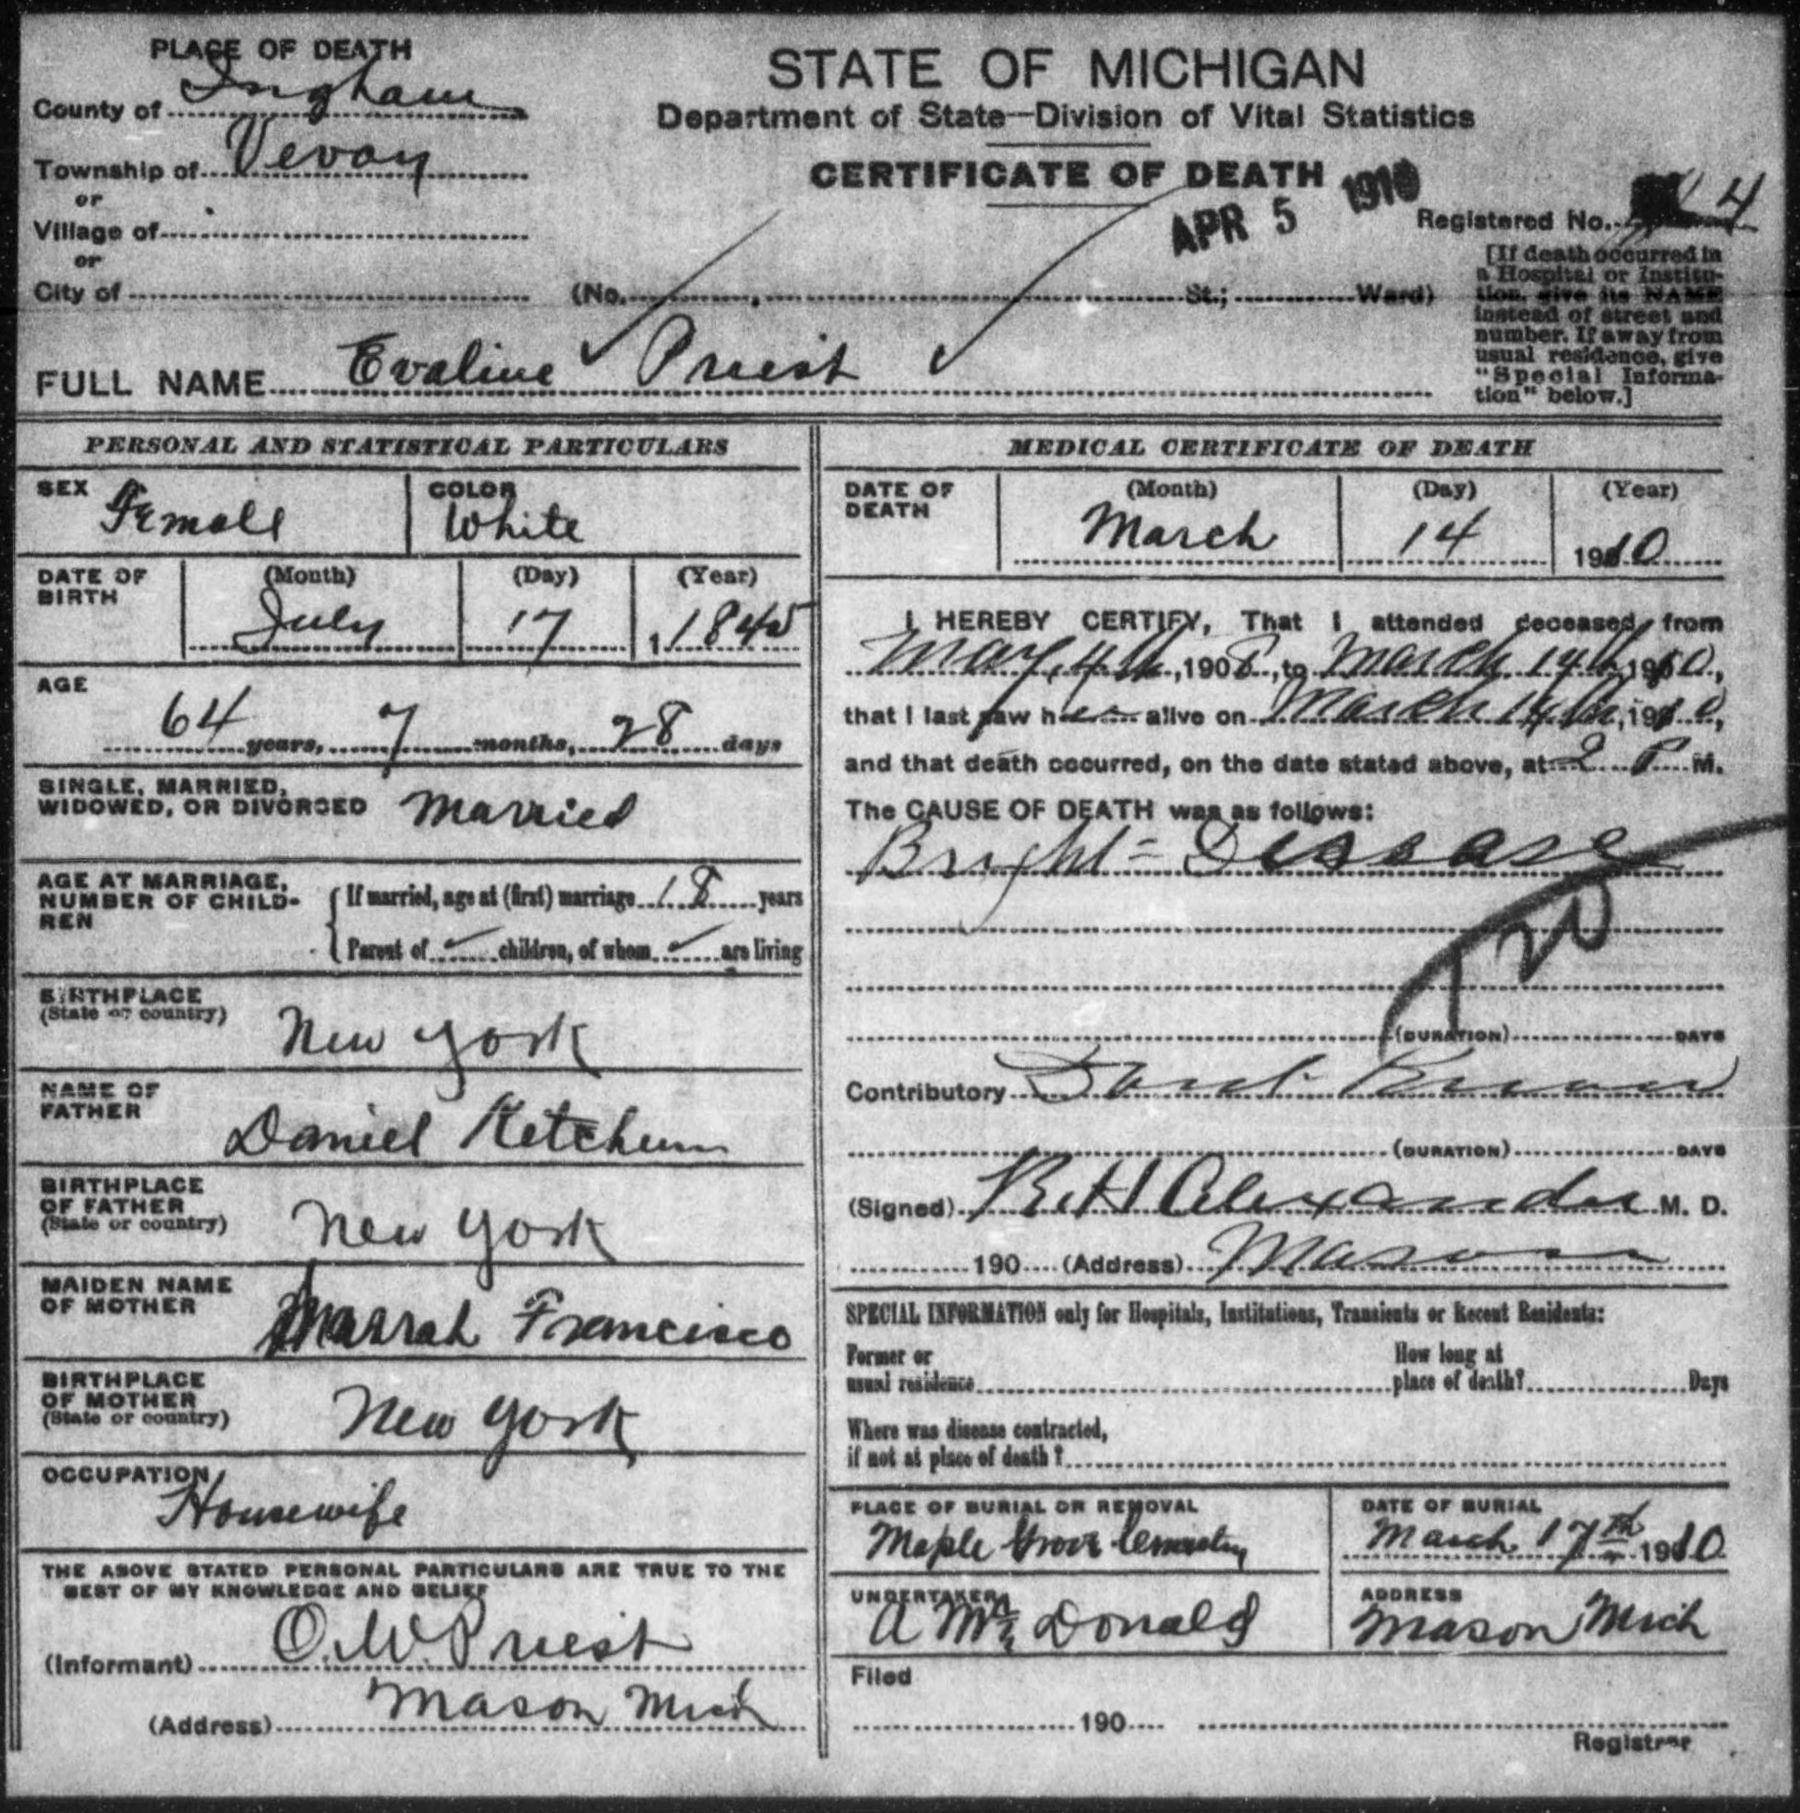 PLACE OF DEATH
County of Ingham
Township of Vevay
or
Village of
or
City of
STATE OF MICHIGAN
Department of State—Division of Vital Statistics
CERTIFICATE OF DEATH
APR 5 1910
Registered No. 4
(No. , St.; Ward)
[If death occurred in
a Hospital or Institu-
tion, give its NAME
instead of street and
number. If away from
usual residence, give
"Special Informa-
tion" below.]
FULL NAME Evaline Priest
PERSONAL AND STATISTICAL PARTICULARS
SEX Female
COLOR White
DATE OF BIRTH (Month) July (Day) 17 (Year) 1845
AGE
64 years, 7 months, 28 days
SINGLE, MARRIED,
WIDOWED, OR DIVORCED Married
AGE AT MARRIAGE,
NUMBER OF CHILD-
REN
If married, age at (first) marriage 18 years
Parent of children, of whom are living
BIRTHPLACE
(State or country) New York
NAME OF
FATHER Daniel Ketchum
BIRTHPLACE
OF FATHER
(State or country) New York
MAIDEN NAME
OF MOTHER Francisco
BIRTHPLACE
OF MOTHER
(State or country) New York
OCCUPATION
Housewife
THE ABOVE STATED PERSONAL PARTICULARS ARE TRUE TO THE
BEST OF MY KNOWLEDGE AND BELIEF
(Informant) O. W. Priest
(Address) Mason Mich
MEDICAL CERTIFICATE OF DEATH
DATE OF DEATH (Month) March (Day) 14 (Year) 1910
I HEREBY CERTIFY, That I attended deceased from
May 4th, 1908, to March 14th, 1910,
that I last saw her alive on March 14th, 1910,
and that death occurred, on the date stated above, at 2 P M.
The CAUSE OF DEATH was as follows:
Bright Disease
120
(DURATION) DAYS
Contributory
(DURATION) DAYS
(Signed) Alexander M. D.
190 (Address) Mason
SPECIAL INFORMATION only for Hospitals, Institutions, Transients or Recent Residents:
Former or
usual residence
How long at
place of death? Days
Where was disease contracted,
if not at place of death?
PLACE OF BURIAL OR REMOVAL
Maple Grove Cemetery
DATE OF BURIAL
March 17th 1910
UNDERTAKER
A Mc Donald
ADDRESS
Mason Mich
Filed
190
Registrar